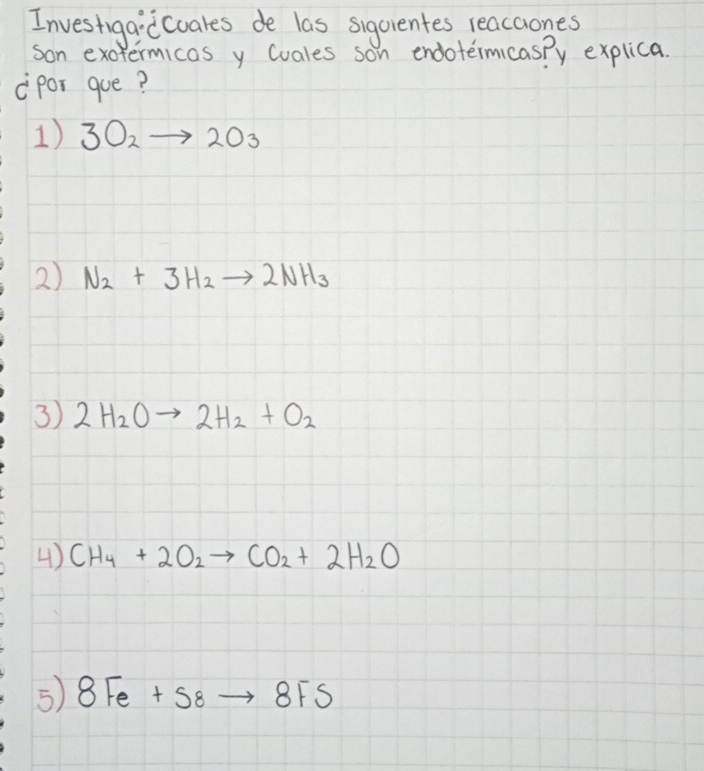 Investiga:¿Cuales de las siguientes reacciones
Son exotérmicas y Cuales són endotérmicas?y explica.
¿Por que?
1) 3O₂ → 2O₃
2) N₂ + 3H₂ → 2NH₃
3) 2H₂O → 2H₂ + O₂
4) CH₄ + 2O₂ → CO₂ + 2H₂O
5) 8Fe + S8 → 8FS